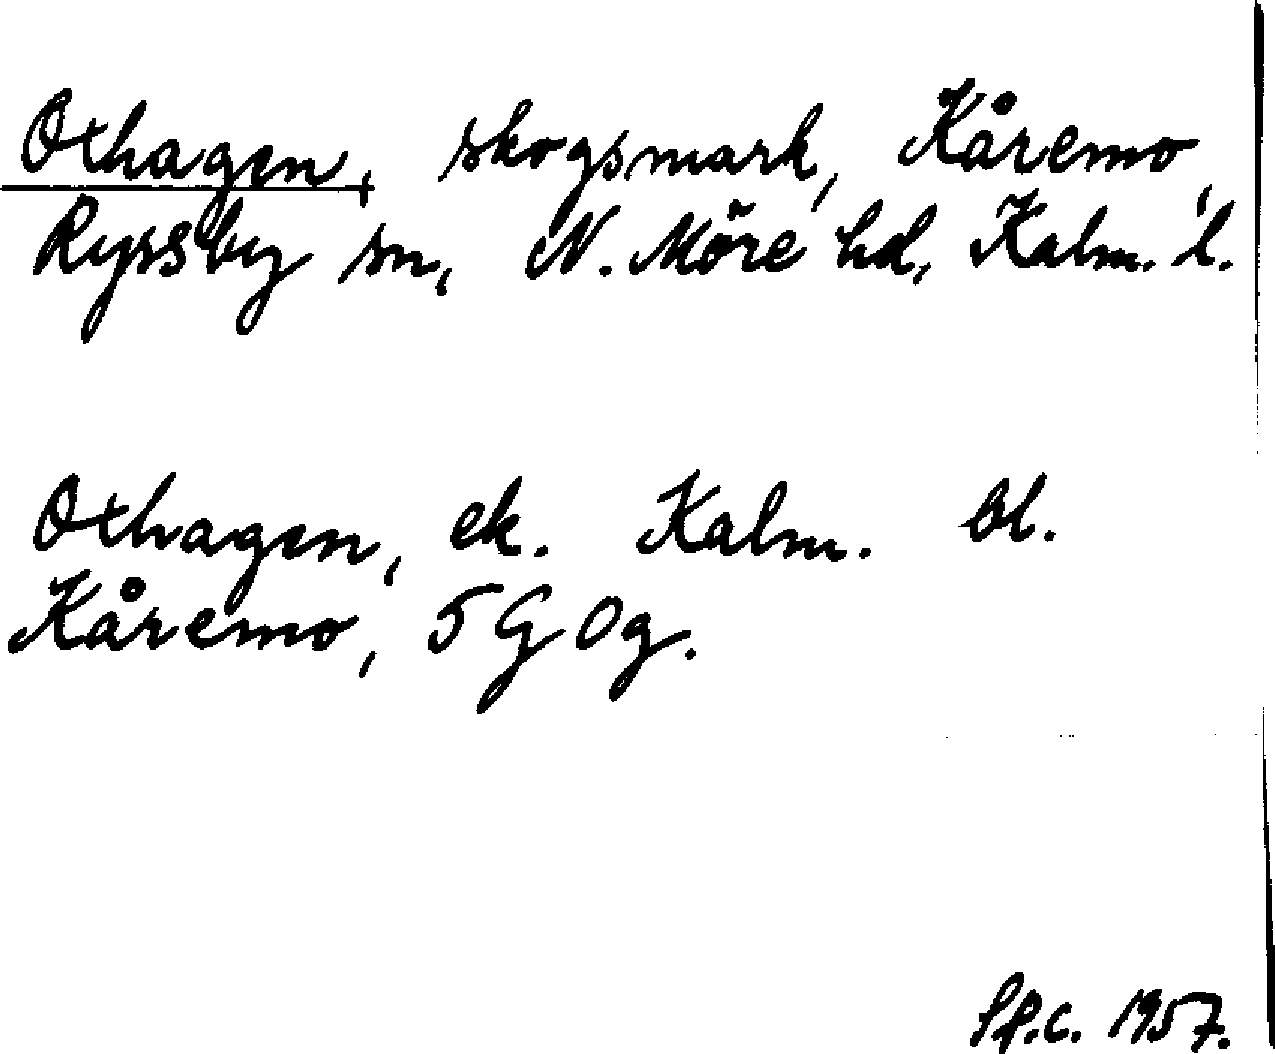 Othagen, skogsmark, Kåremo,
Ryssby sn, N. Möre hd, Kalm. l.
Othagen, ek. Kalm. bl.
Kåremo, 5 G 0g.
Sp.c. 1957.